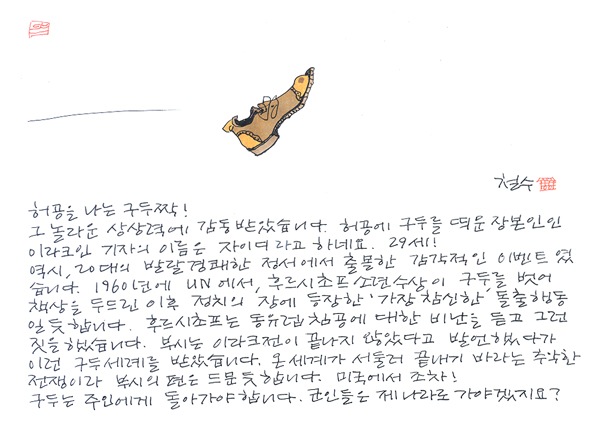 철수
허공을 나는 구두짝!
그 놀라운 상상력에 감동 받았습니다. 허공에 구두를 띄운 장본인인
이라크인 기자의 이름은 자이디라고 하네요. 29세!
역시, 20대의 발랄경쾌한 정서에서 출몰한 감각적인 이벤트 였
습니다. 1960년에 UN에서, 후르시초프 소련수상이 구두를 벗어
책상을 두드린 이후 정치의 장에 등장한 '가장 참신한' 돌출행동
일 듯합니다. 후르시초프는 동유럽 침공에 대한 비난을 듣고 그런
짓을 했습니다. 부시는 이라크전이 끝나지 않았다고 발언했다가
이런 구두세례를 받았습니다. 온세계가 서둘러 끝내기 바라는 추악한
전쟁이라 부시의 편은 드문 듯 합니다. 미국에서 조차!
구두는 주인에게 돌아가야 합니다. 군인들은 제 나라로 가야겠지요?